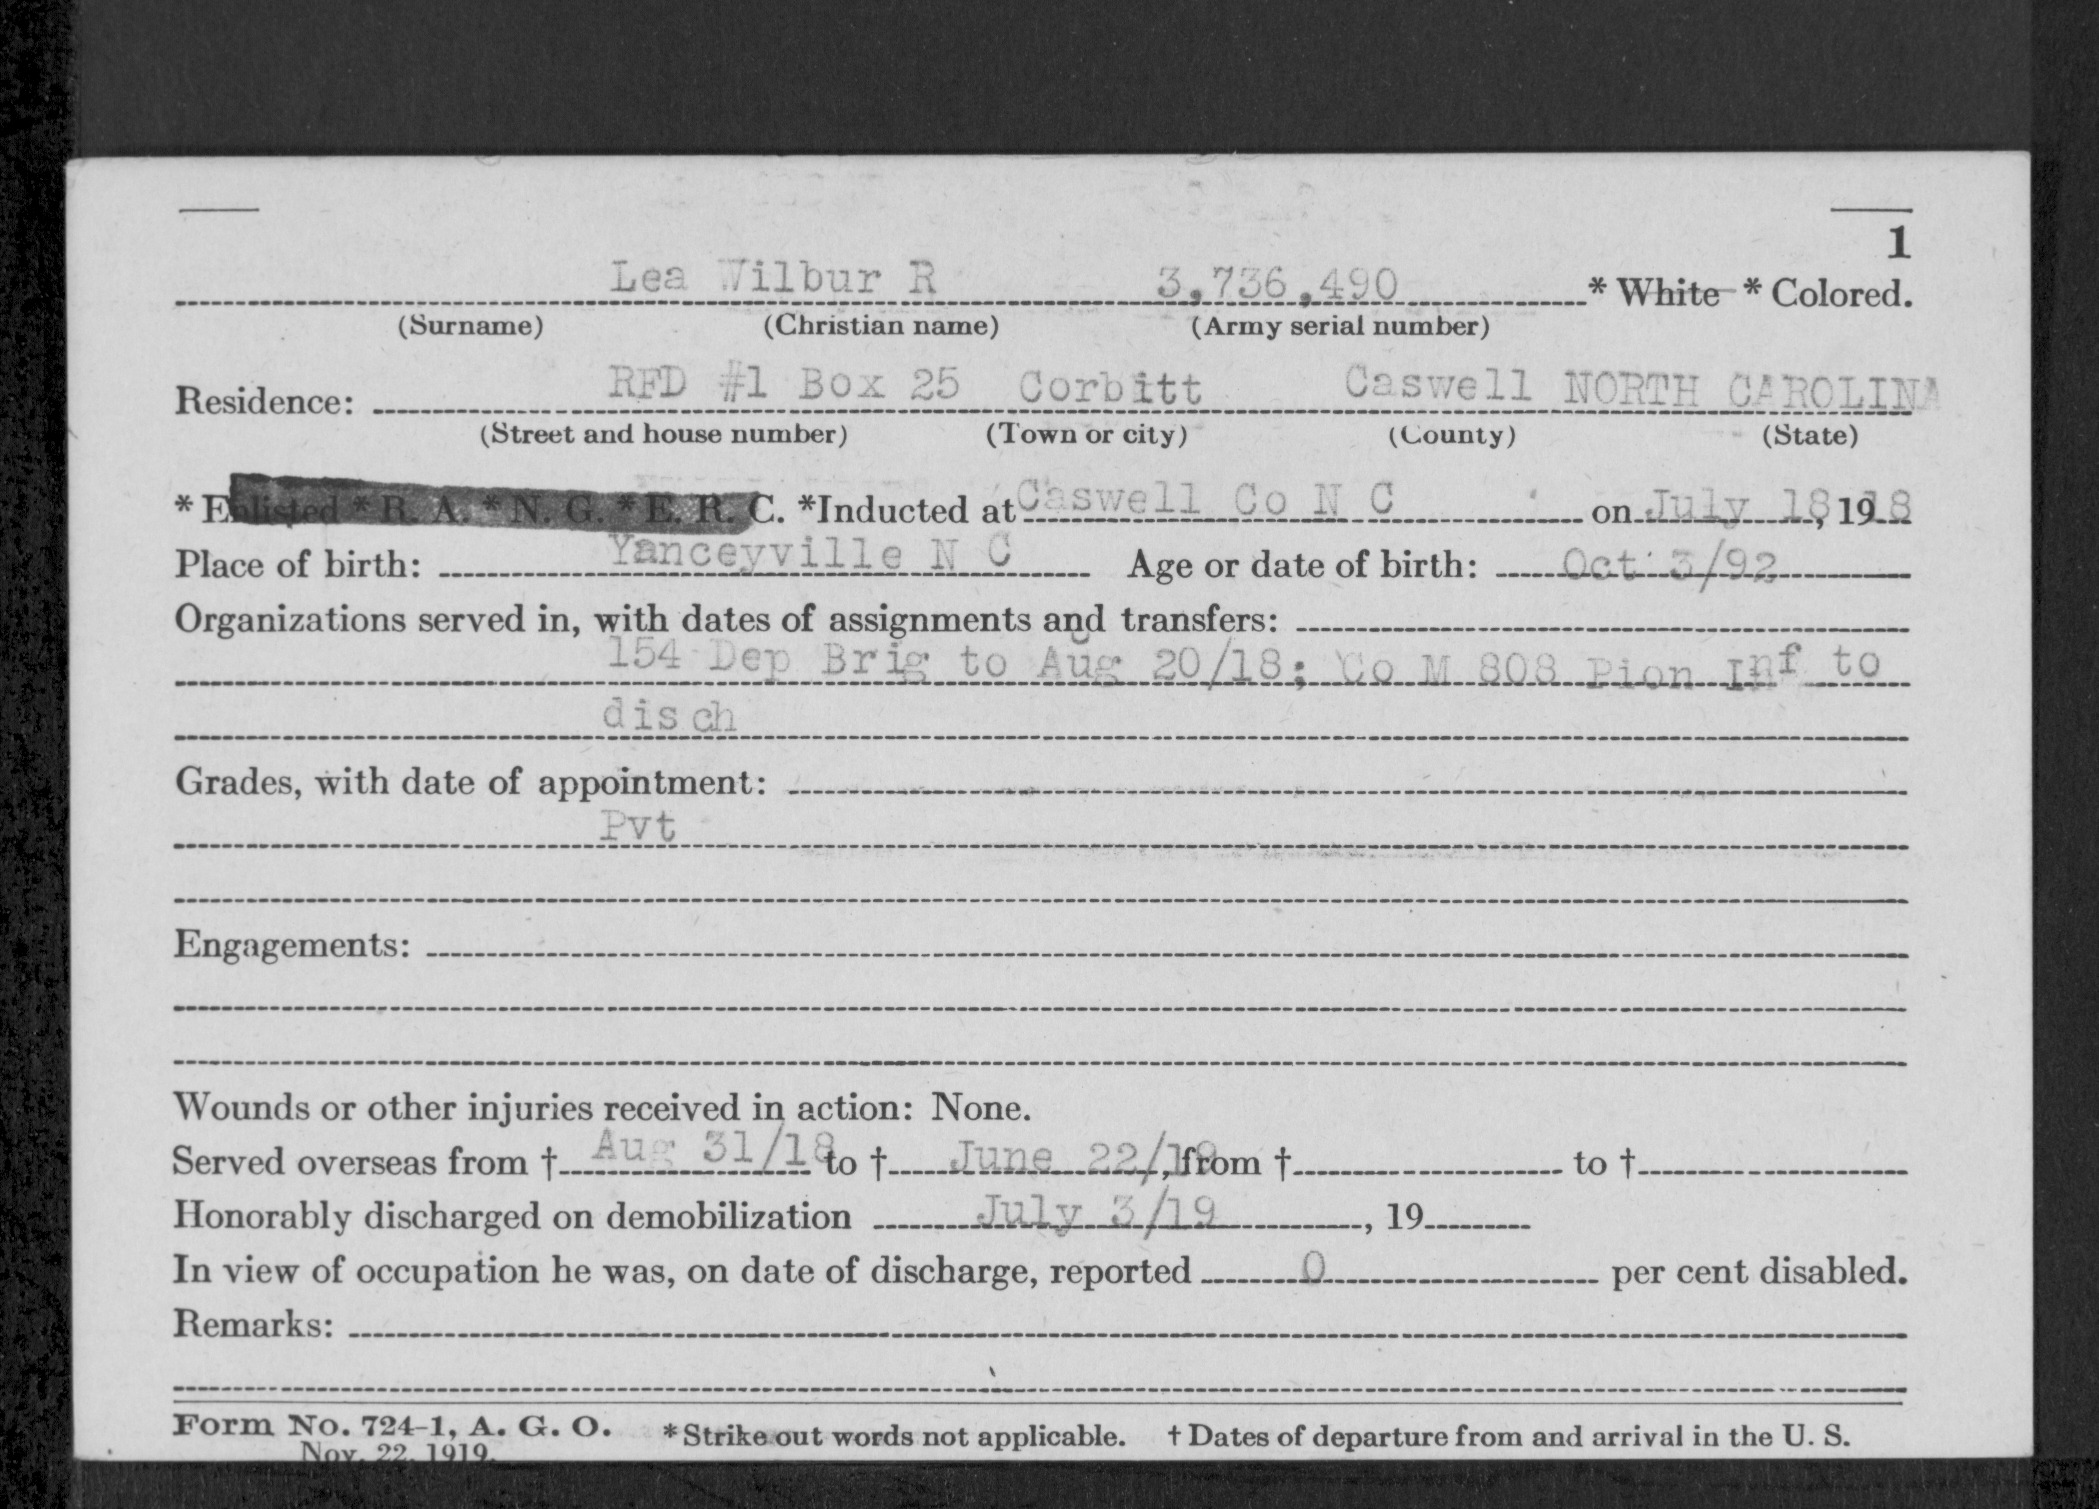 1
Lea Wilbur R 3,736,490 * White * Colored.
(Surname) (Christian name) (Army serial number)
Residence: RFD #1 Box 25 Corbitt Caswell NORTH CAROLINA
(Street and house number) (Town or city) (County) (State)
* Enlisted * R. A. * N. G. * E. R. C. *Inducted at Caswell Co N C on July 18, 1918
Place of birth: Yanceyville N C Age or date of birth: Oct 3/92
Organizations served in, with dates of assignments and transfers:
154 Dep Brig to Aug 20/18; Co M 808 Pion Inf to
disch
Grades, with date of appointment:
Pvt
Engagements:
Wounds or other injuries received in action: None.
Served overseas from † Aug 31/18 to † June 22/19, from † to †
Honorably discharged on demobilization July 3/19, 19
In view of occupation he was, on date of discharge, reported 0 per cent disabled.
Remarks:
Form No. 724-1, A. G. O. * Strike out words not applicable. † Dates of departure from and arrival in the U. S.
Nov. 22, 1919.